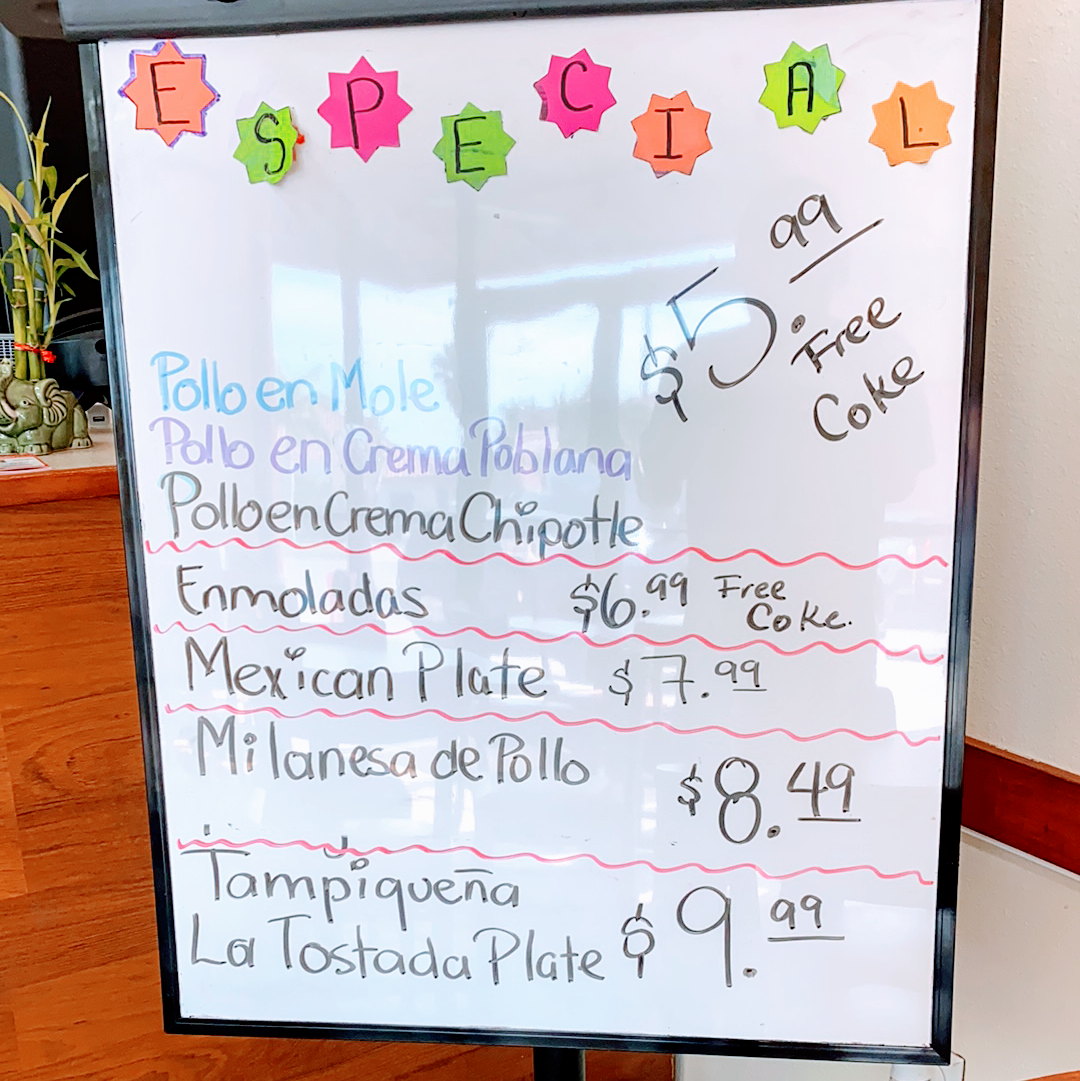 ESPECIAL
$5.99
Free
Coke
Pollo en Mole
Pollo en Crema Poblana
Pollo en Crema Chipotle
Enmoladas $6.99 Free
Coke.
Mexican Plate $7.99
Milanesa de Pollo
$8.49
Tampiqueña
La Tostada Plate $9.99